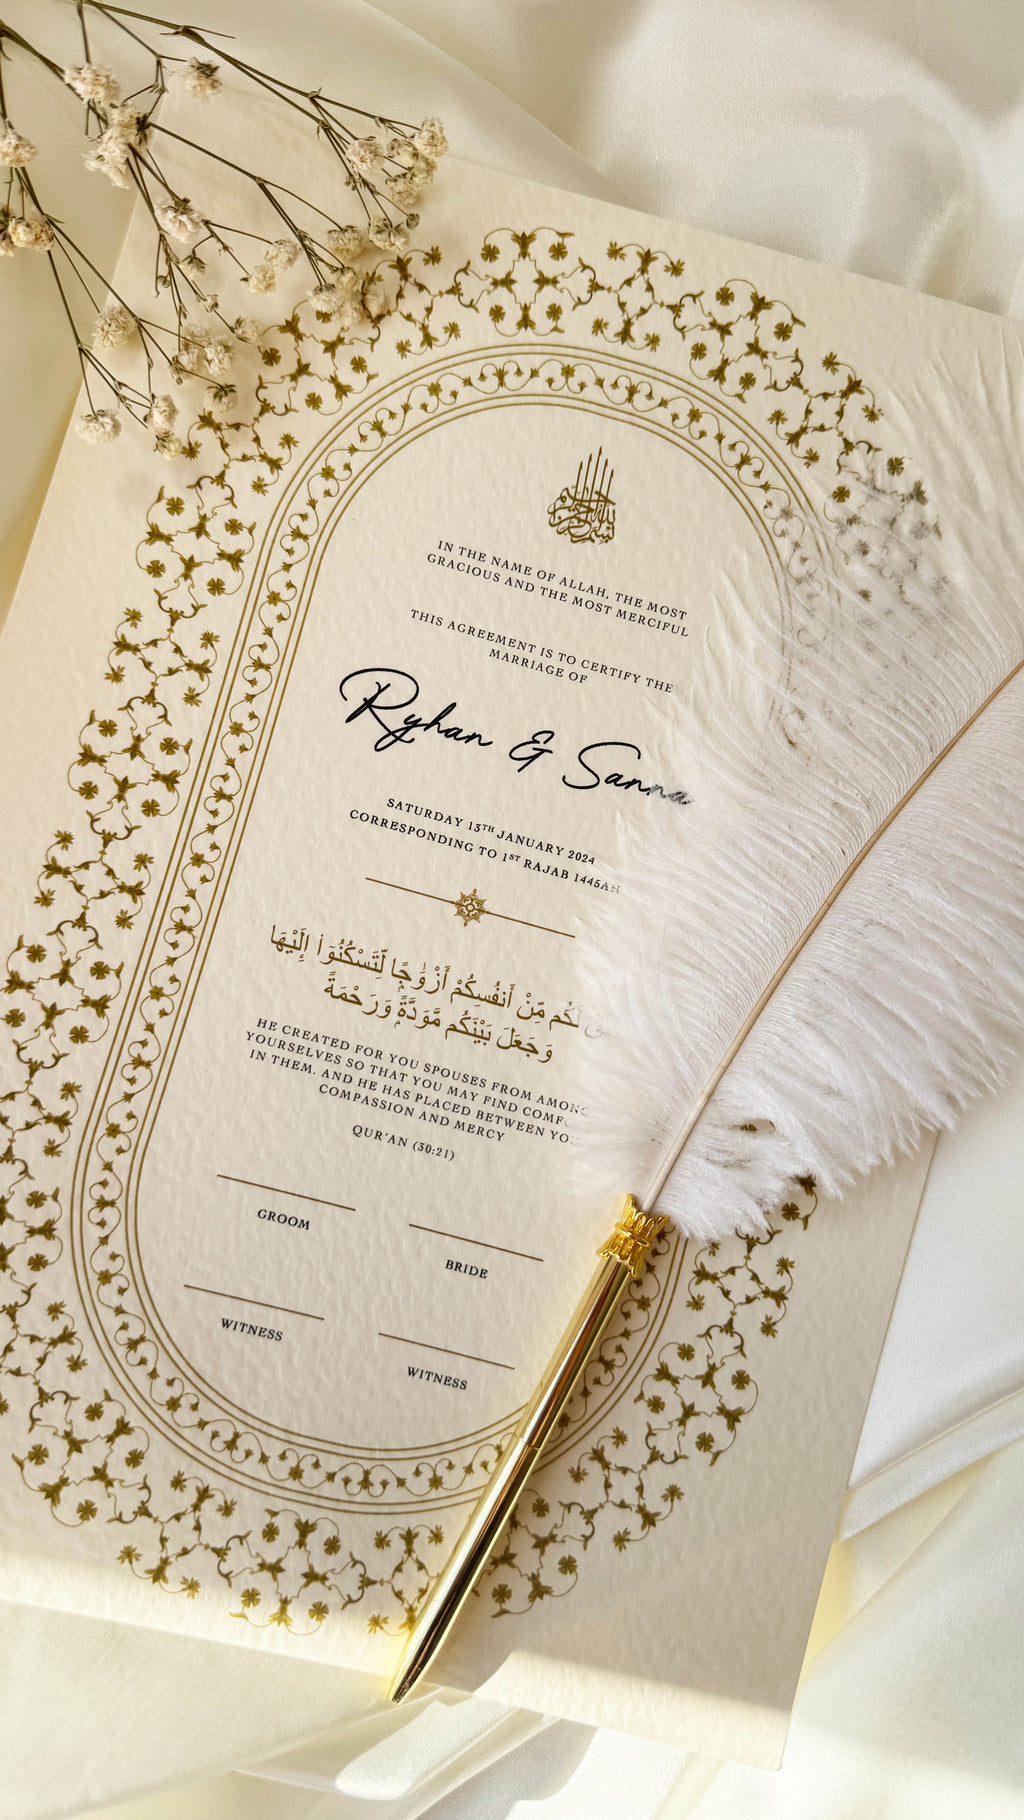 بسم الله الرحمن الرحيم
IN THE NAME OF ALLAH, THE MOST
GRACIOUS AND THE MOST MERCIFUL
THIS AGREEMENT IS TO CERTIFY THE
MARRIAGE OF
Ryhan & Sanna
SATURDAY 13TH JANUARY 2024
CORRESPONDING TO 1ST RAJAB 1445AH
لَكُم مِّنْ أَنفُسِكُمْ أَزْوَٰجًا لِّتَسْكُنُوٓا۟ إِلَيْهَا
وَجَعَلَ بَيْنَكُم مَّوَدَّةً وَرَحْمَةً
HE CREATED FOR YOU SPOUSES FROM AMONG
YOURSELVES SO THAT YOU MAY FIND
IN THEM. AND HE HAS PLACED BETWEEN
COMPASSION AND MERCY
QUR'AN (30:21)
GROOM
BRIDE
WITNESS
WITNESS